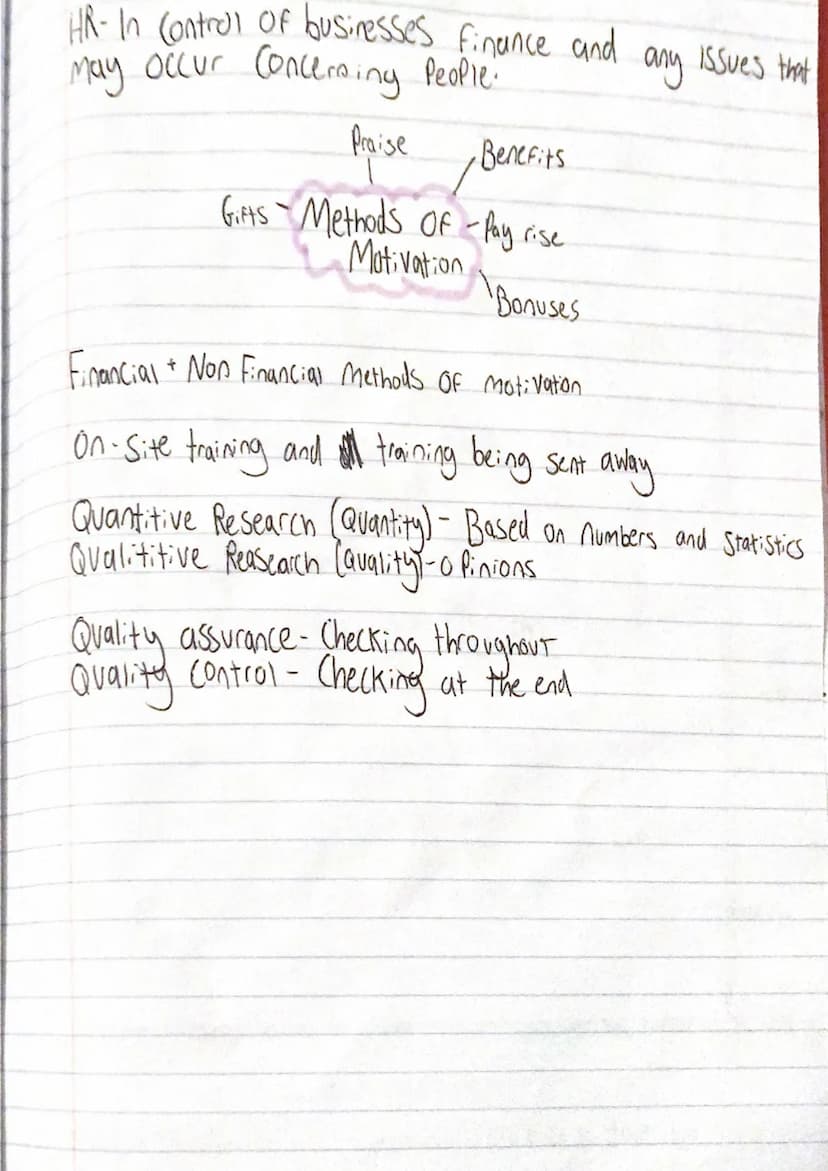 HR- In Control OF businesses finance and any issues that
may occur Concerning People.
Praise
Benefits
Gifts - Methods OF - Pay rise
Motivation
Bonuses
Financial + Non Financial Methods OF motivation
On-Site training and training being sent away
Quantitive Research (Quantity) - Based on numbers and statistics
Qualititive Reasearch (quality) - opinions
Quality assurance - Checking throughout
Quality Control - Checking at the end